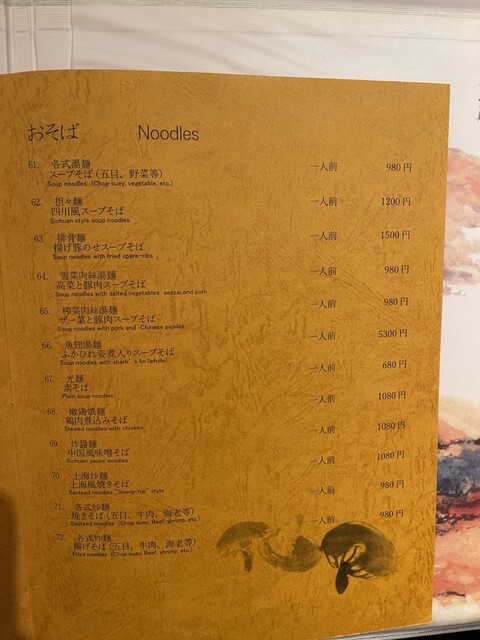 おそば Noodles
61. 各式湯麺 一人前 980円
スープそば（五目、野菜等）
Soup noodles (Chop suey, vegetable, etc.)
62. 担々麺 一人前 1200円
四川風スープそば
Sichuan style soup noodles
63. 排骨麺 一人前 1500円
揚げ豚のせスープそば
Soup noodles with fried spare-ribs
64. 雪菜肉絲湯麺 一人前 980円
高菜と豚肉スープそば
Soup noodles with salted vegetables sezzai and pork
65. 搾菜肉絲湯麺 一人前 980円
ザー菜と豚肉スープそば
Soup noodles with pork and Chinese pickles
66. 魚翅湯麺 一人前 5300円
ふかひれ姿煮入りスープそば
Soup noodles with shark's fin (whole)
67. 光麺 一人前 680円
素そば
Plain soup noodles
68. 嫩鶏煨麺 一人前 1080円
鶏肉煮込みそば
Stewed noodles with chicken
69. 炸醤麺 一人前 1080円
中国風味噌そば
Sichuan sauce noodles
70. 上海炒麺 一人前 1080円
上海風焼きそば
Sauteed noodles "Shang-hai" style
71. 各式炒麺 一人前 980円
焼きそば（五目、牛肉、海老等）
Sauteed noodles (Chop suey, Beef, shrimp, etc.)
72. 各式炸麺 一人前 980円
揚げそば（五目、牛肉、海老等）
Fried noodles (Chop suey, Beef, shrimp, etc.)